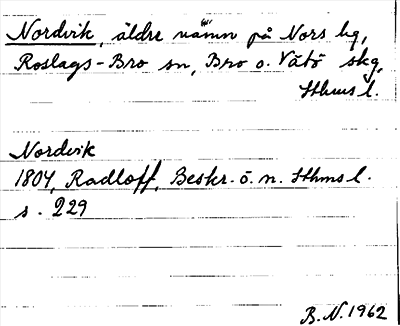 Nordvik, äldre namn på Nors hg,
Roslags-Bro sn, Bro o. Vätö skg,
Sthms l.
Nordvik
1804, Radloff, Beskr. ö. n. Sthms l.
s. 229
B.N. 1962